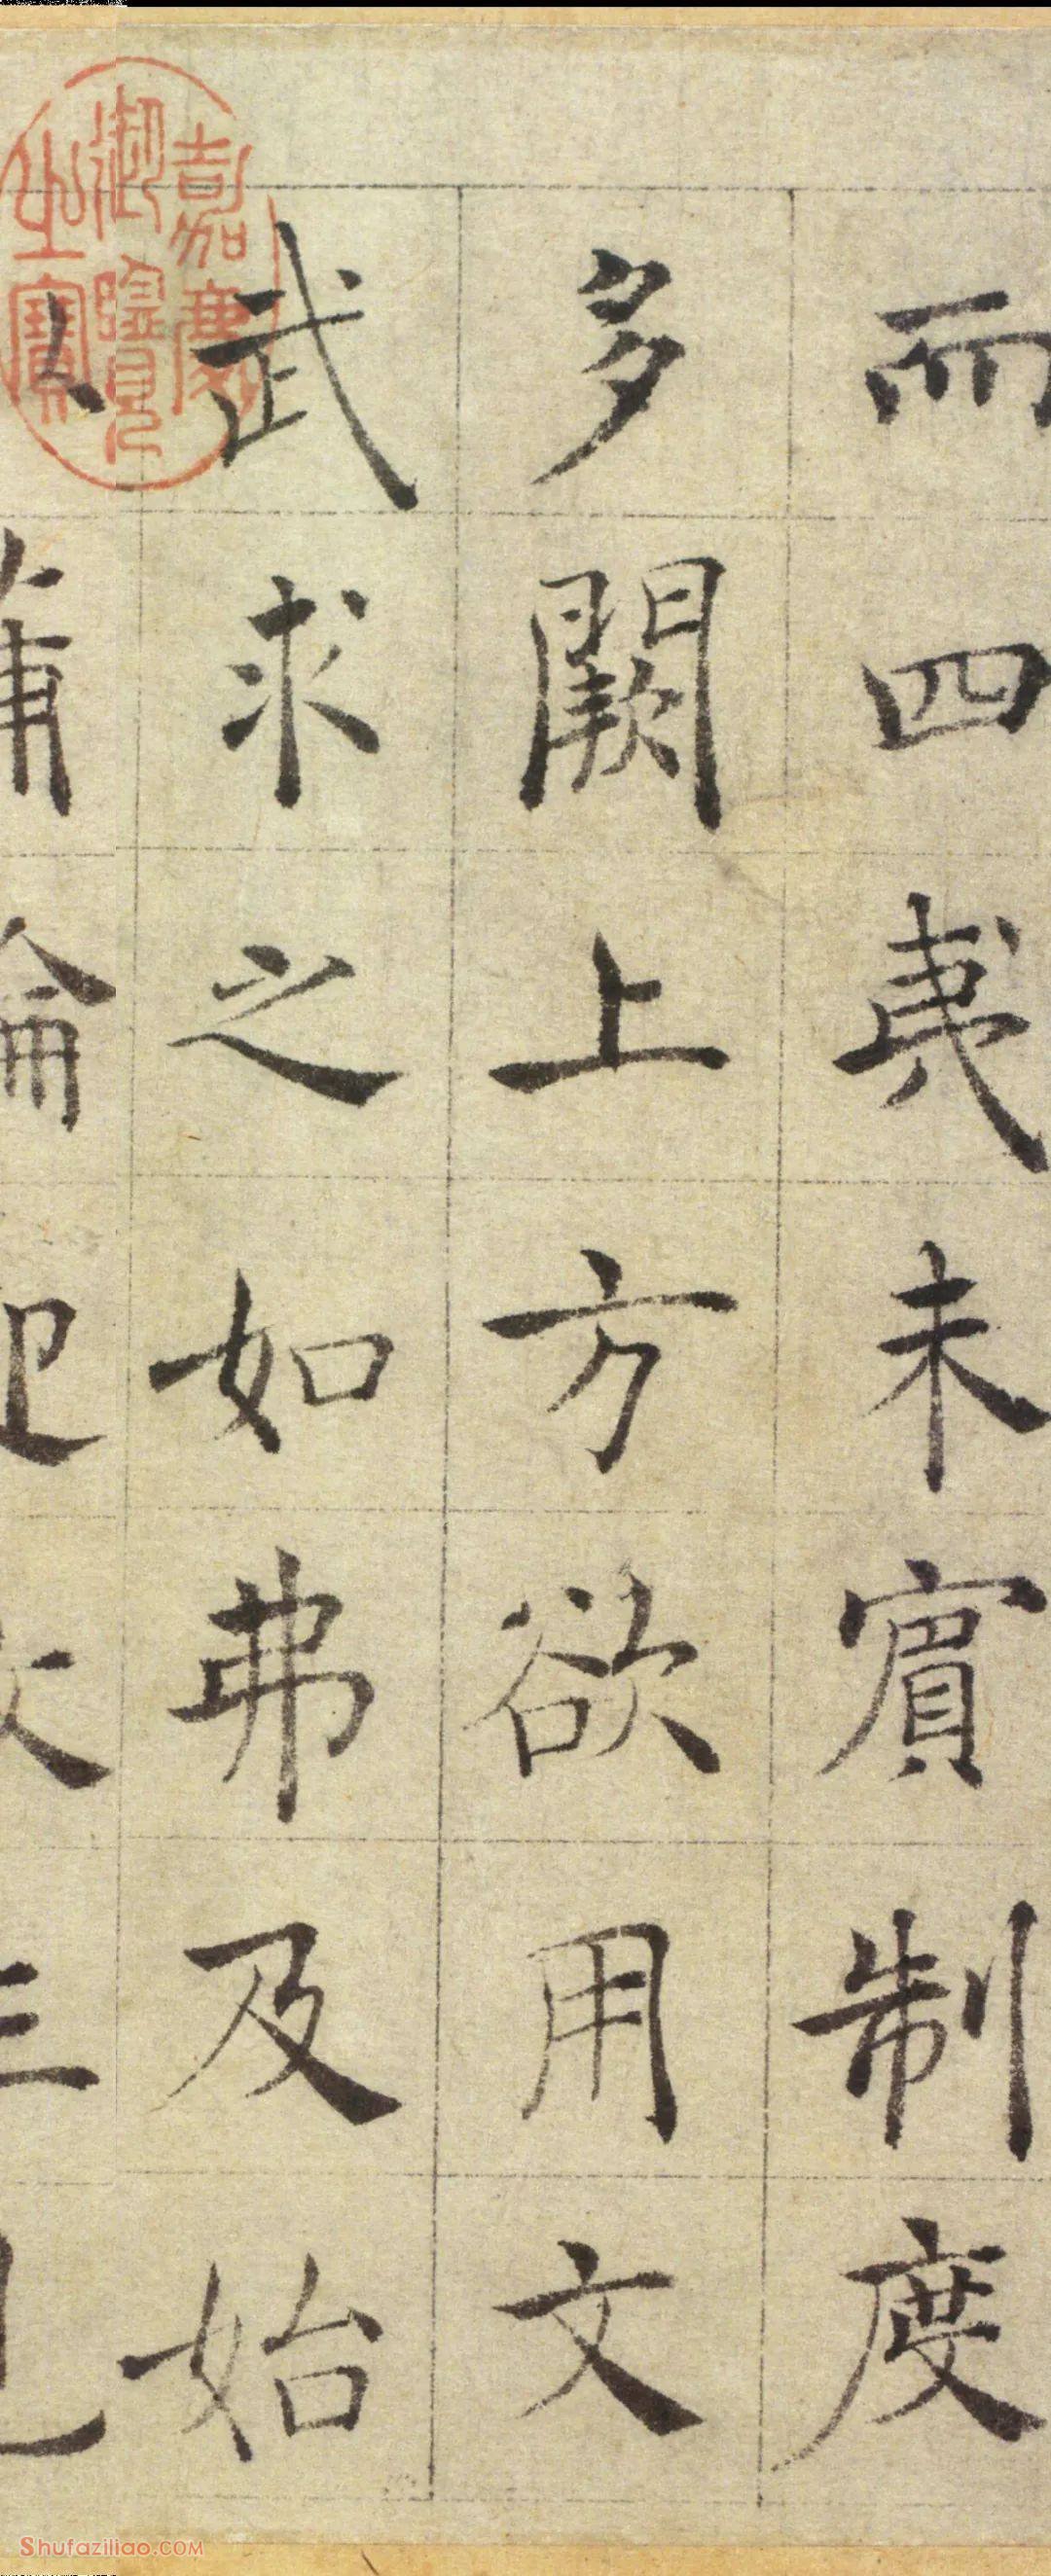 而四夷未賓制度
多闕上方欲用文
武求之如弗及始
以蒲輪迎枚生見
嘉慶御覽之寶
Shufaziliao.COM